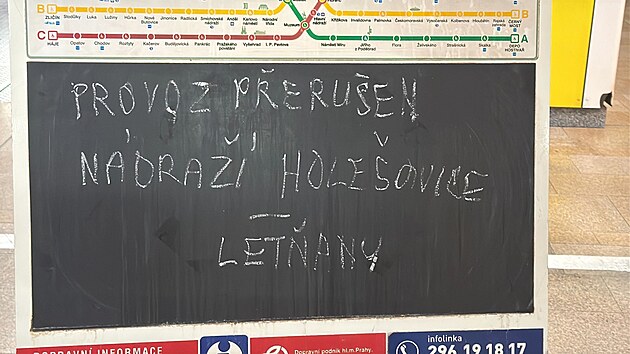 B
ZLIČÍN
Stodůlky
Luka
Lužiny
Hůrka
Nové Butovice
Jinonice
Radlická
Smíchovské nádraží
Anděl
Karlovo náměstí
Národní třída
Muzeum
Hlavní nádraží
Křižíkova
Invalidovna
Palmovka
Českomoravská
Vysočanská
Kolbenova
Hloubětín
Rajská zahrada
ČERNÝ MOST
B
C
HÁJE
Opatov
Chodov
Roztyly
Kačerov
Budějovická
Pankrác
Pražského povstání
Vyšehrad
I. P. Pavlova
Náměstí Míru
Jiřího z Poděbrad
Flora
Želivského
Strašnická
Skalka
DEPO HOSTIVAŘ
A
PROVOZ PŘERUŠEN
NÁDRAŽÍ HOLEŠOVICE
–
LETŇANY
DOPRAVNÍ INFORMACE
Dopravní podnik hl.m. Prahy,
infolinka
296 19 18 17